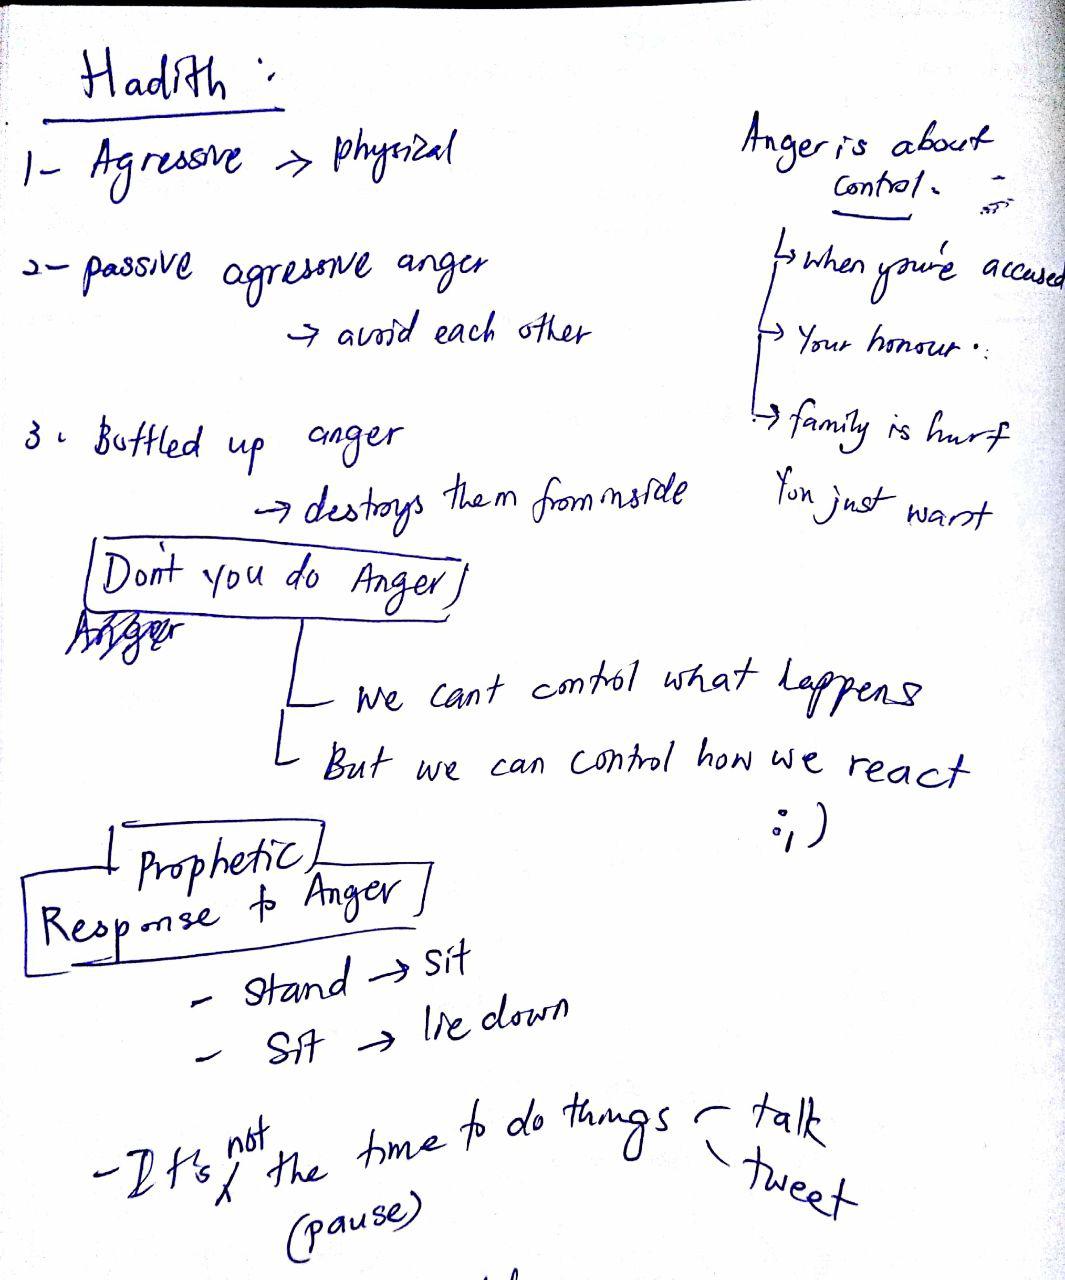 Hadith :
1- Agressive → physical
2- passive agressive anger
→ avoid each other
3. Bottled up anger
→ destroys them from inside
Anger is about
control.
↳ when you're accused
→ Your honour
↳ family is hurt
You just want
Don't you do Anger
We cant control what happens
But we can control how we react
:,)
Prophetic
Response to Anger
- Stand → Sit
- Sit → lie down
- It's not the time to do things - talk
tweet
(pause)